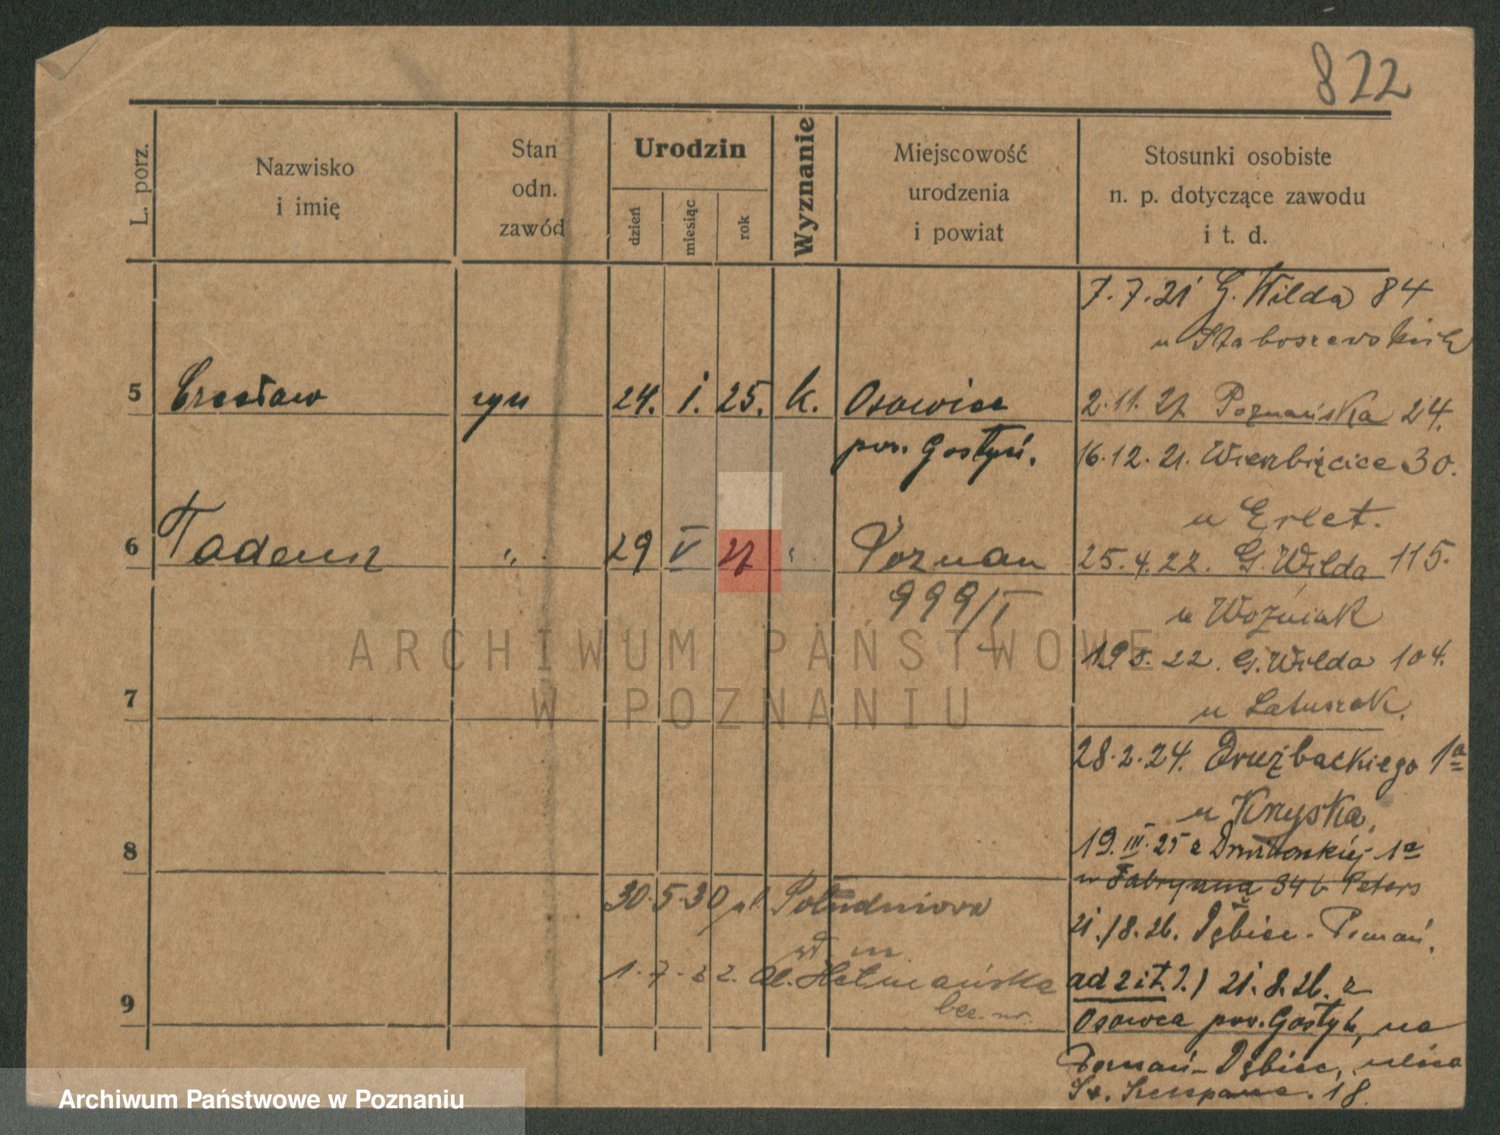 822
L. porz.
Nazwisko
i imię
Stan
odn.
zawód
Urodzin
dzień
miesiąc
rok
Wyznanie
Miejscowość
urodzenia
i powiat
Stosunki osobiste
n. p. dotyczące zawodu
i t. d.
7.7.21 G. Wilda 84
u
5 Czesław syn 24. 1. 25. k. Osowiec
pow. Gostyń.
2.11.21 Poznańska 24.
16.12.21. Wierzbięcice 30.
u Erlet.
6 Tadeusz " 29 V 27 " Poznań
999/I
25.4.22. G. Wilda 115.
u Woźniak
19.5.22. G. Wilda 104.
u
7
28.2.24. Drużbackiego 1a
u Kryska,
19.III.25 z 1a
8
w Fabryczna 34 b. Peters
30.5.30 pl. Południowa
21./8.26. Dębiec-Poznań.
1.7.32. Al. Hetmańska
bez. nr.
ad 2 i t.d.) 21.8.26. z
9
Osowca pow. Gostyń, na
Poznań-Dębiec, ulica
18
ARCHIWUM PAŃSTWOWE
W POZNANIU
Archiwum Państwowe w Poznaniu